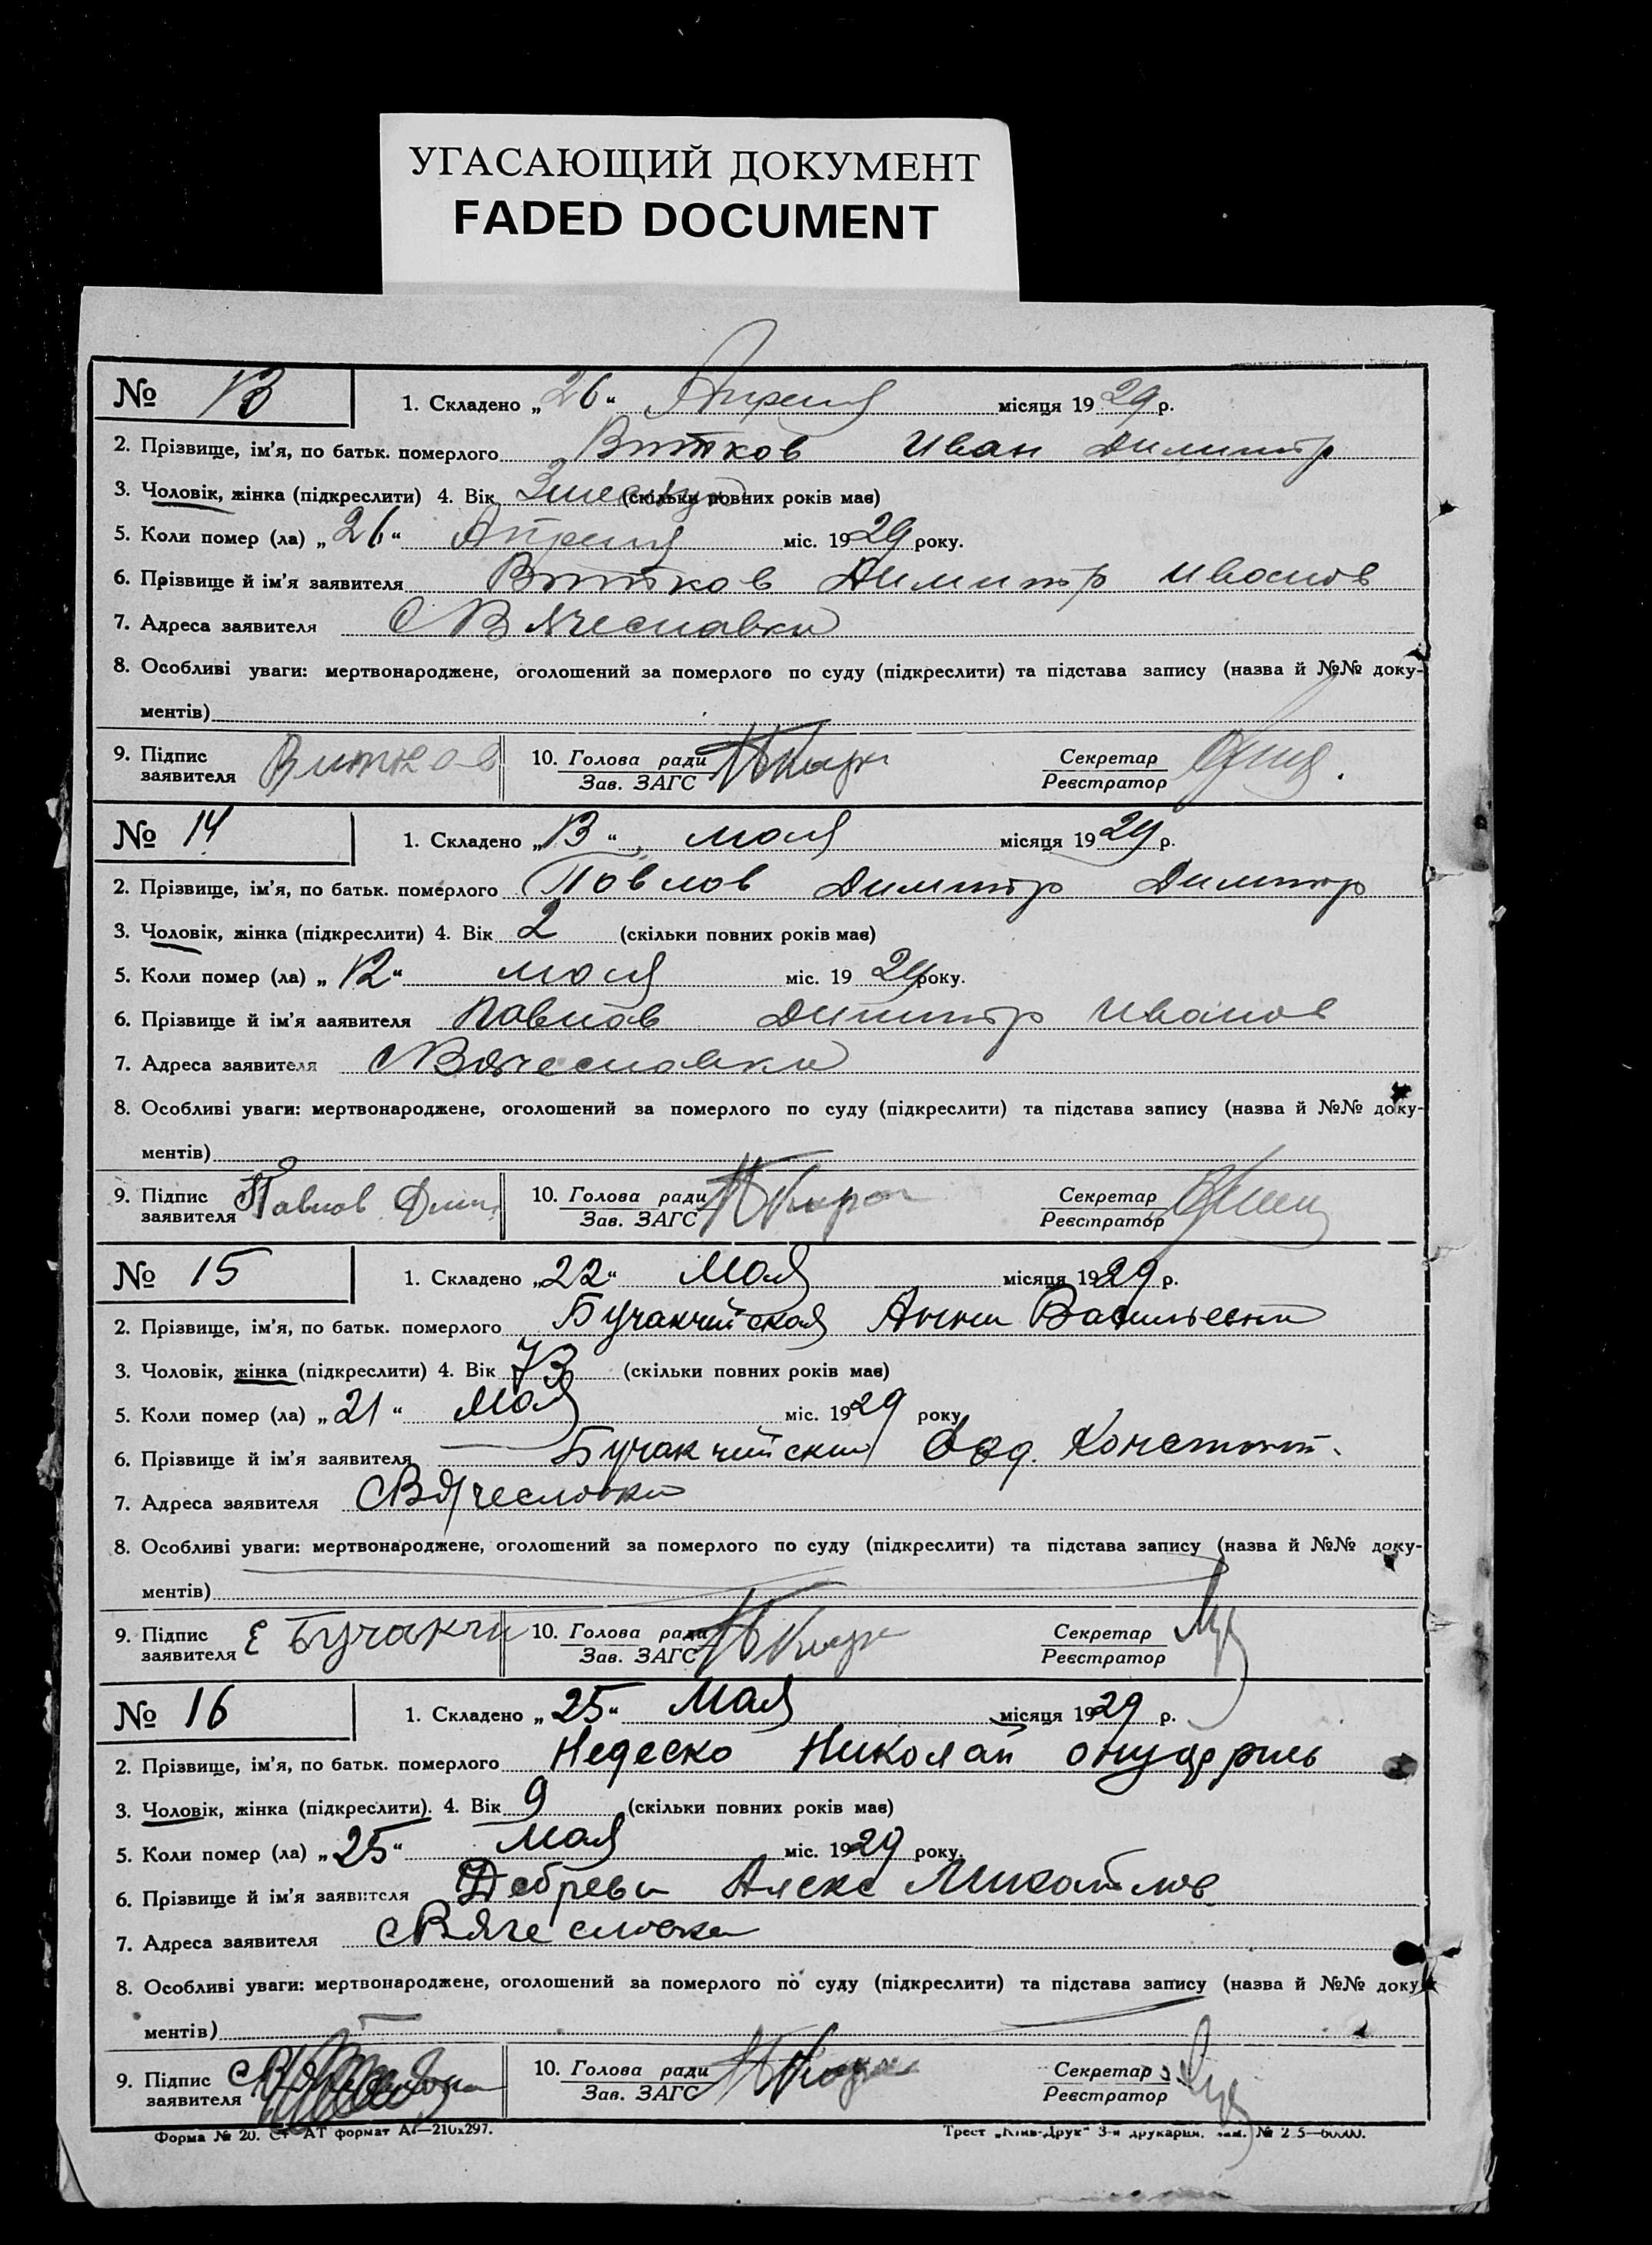 УГАСАЮЩИЙ ДОКУМЕНТ
FADED DOCUMENT
№ 13 1. Складено „26“ Апреля місяця 1929 р.
2. Прізвище, ім’я, по батьк. померлого Витков Иван Димитр
3. Чоловік, жінка (підкреслити) 4. Вік (скільки повних років має)
5. Коли помер (ла) „26“ Апреля міс. 1929 року.
6. Прізвище й ім’я заявителя Витков Димитр Иванов
7. Адреса заявителя С Вячеславка
8. Особливі уваги: мертвонароджене, оголошений за померлого по суду (підкреслити) та підстава запису (назва й №№ доку-
ментів)
9. Підпис заявителя Витков 10. Голова ради Зав. ЗАГС Секретар Реєстратор
№ 14 1. Складено „13“ мая місяця 1929 р.
2. Прізвище, ім’я, по батьк. померлого Павлов Димитр Димитр
3. Чоловік, жінка (підкреслити) 4. Вік 2 (скільки повних років має)
5. Коли помер (ла) „12“ мая міс. 1929 року.
6. Прізвище й ім’я ааявителя Павлов Димитр Иванов
7. Адреса заявителя С Вячеславка
8. Особливі уваги: мертвонароджене, оголошений за померлого по суду (підкреслити) та підстава запису (назва й №№ доку-
ментів)
9. Підпис заявителя Павлов Дим 10. Голова ради Зав. ЗАГС Секретар Реєстратор
№ 15 1. Складено „22“ Мая місяця 1929 р.
2. Прізвище, ім’я, по батьк. померлого Бучакчийская Анна Васильевна
3. Чоловік, жінка (підкреслити) 4. Вік 73 (скільки повних років має)
5. Коли помер (ла) „21“ Мая міс. 1929 року
6. Прізвище й ім’я заявителя Бучакчийский Констант.
7. Адреса заявителя С Вячеславка
8. Особливі уваги: мертвонароджене, оголошений за померлого по суду (підкреслити) та підстава запису (назва й №№ доку-
ментів)
9. Підпис заявителя Бучакчи 10. Голова ради Зав. ЗАГС Секретар Реєстратор
№ 16 1. Складено „25“ Мая місяця 1929 р.
2. Прізвище, ім’я, по батьк. померлого Недеско Николай
3. Чоловік, жінка (підкреслити). 4. Вік 9 (скільки повних років має)
5. Коли помер (ла) „25“ Мая міс. 1929 року.
6. Прізвище й ім’я заявителя Добрева Алекс Михайлов
7. Адреса заявителя С Вячеславка
8. Особливі уваги: мертвонароджене, оголошений за померлого по суду (підкреслити) та підстава запису (назва й №№ доку
ментів)
9. Підпис заявителя 10. Голова ради Зав. ЗАГС Секретар Реєстратор
Форма № 20. Ст АТ формат А4—210х297. Трест „Київ-Друк“ 3-я друкарня.